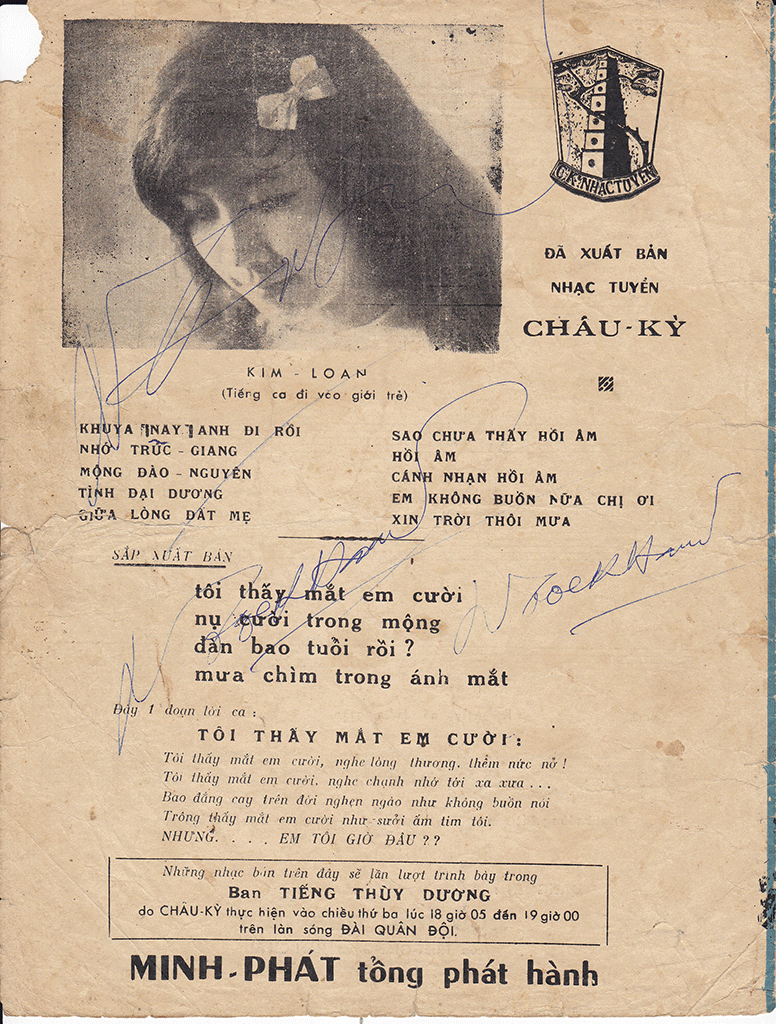 C.K. NHẠC TUYỂN
ĐÃ XUẤT BẢN
NHẠC TUYỂN
CHÂU-KỲ
KIM - LOAN
(Tiếng ca đi vào giới trẻ)
KHUYA NAY ANH ĐI RỒI
NHỚ TRÚC - GIANG
MỘNG ĐÀO - NGUYÊN
TÌNH ĐẠI DƯƠNG
GIỮA LÒNG ĐẤT MẸ
SAO CHƯA THẤY HỒI ÂM
HỒI ÂM
CÁNH NHẠN HỒI ÂM
EM KHÔNG BUỒN NỮA CHỊ ƠI
XIN TRỜI THÔI MƯA
SẮP XUẤT BẢN
tôi thấy mắt em cười
nụ cười trong mộng
đàn bao tuổi rồi ?
mưa chìm trong ánh mắt
Đây 1 đoạn lời ca :
TÔI THẤY MẮT EM CƯỜI :
Tôi thấy mắt em cười, nghe lòng thương, thềm nức nở !
Tôi thấy mắt em cười, nghe chạnh nhớ tới xa xưa . . .
Bao đắng cay trên đời nghẹn ngào như không buồn nói
Trông thấy mắt em cười như sưởi ấm tim tôi.
NHƯNG. . . . . EM TÔI GIỜ ĐÂU ? ?
Những nhạc bản trên đây sẽ lần lượt trình bày trong
Ban TIẾNG THÙY DƯƠNG
do CHÂU-KỲ thực hiện vào chiều thứ ba lúc 18 giờ 05 đến 19 giờ 00
trên làn sóng ĐÀI QUÂN ĐỘI.
MINH-PHÁT tổng phát hành